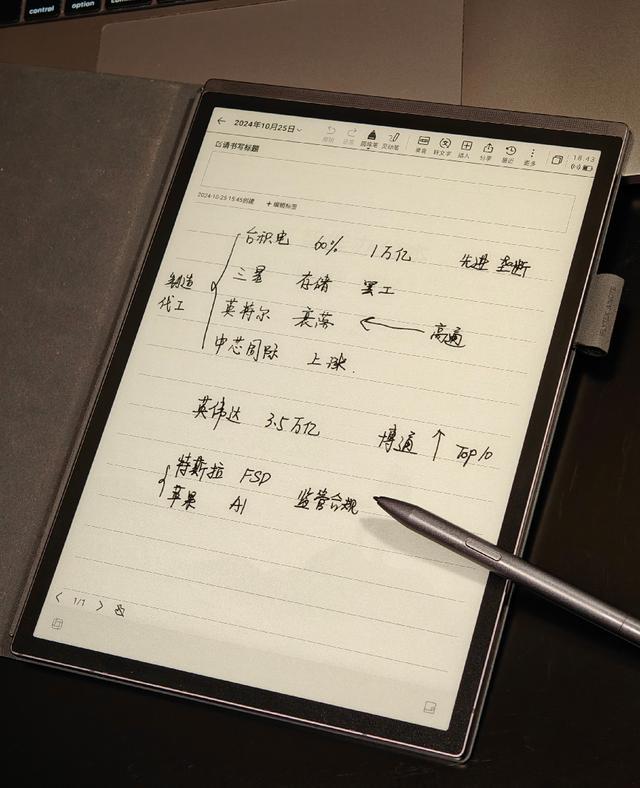 control option
2024年10月25日
撤销 还原 圆珠笔 灵动笔 录音 转文字 插入 分享 最近 更多
18:43
请书写标题
2024-10-25 15:45创建 + 编辑标签
台积电 60% 1万亿 先进 垄断
三星 存储 罢工
制造
代工
英特尔 衰落 ← 高通
中芯国际 上涨.
英伟达 3.5万亿 博通 ↑ Top10
特斯拉 FSD
苹果 AI 监管合规
< 1/1 >